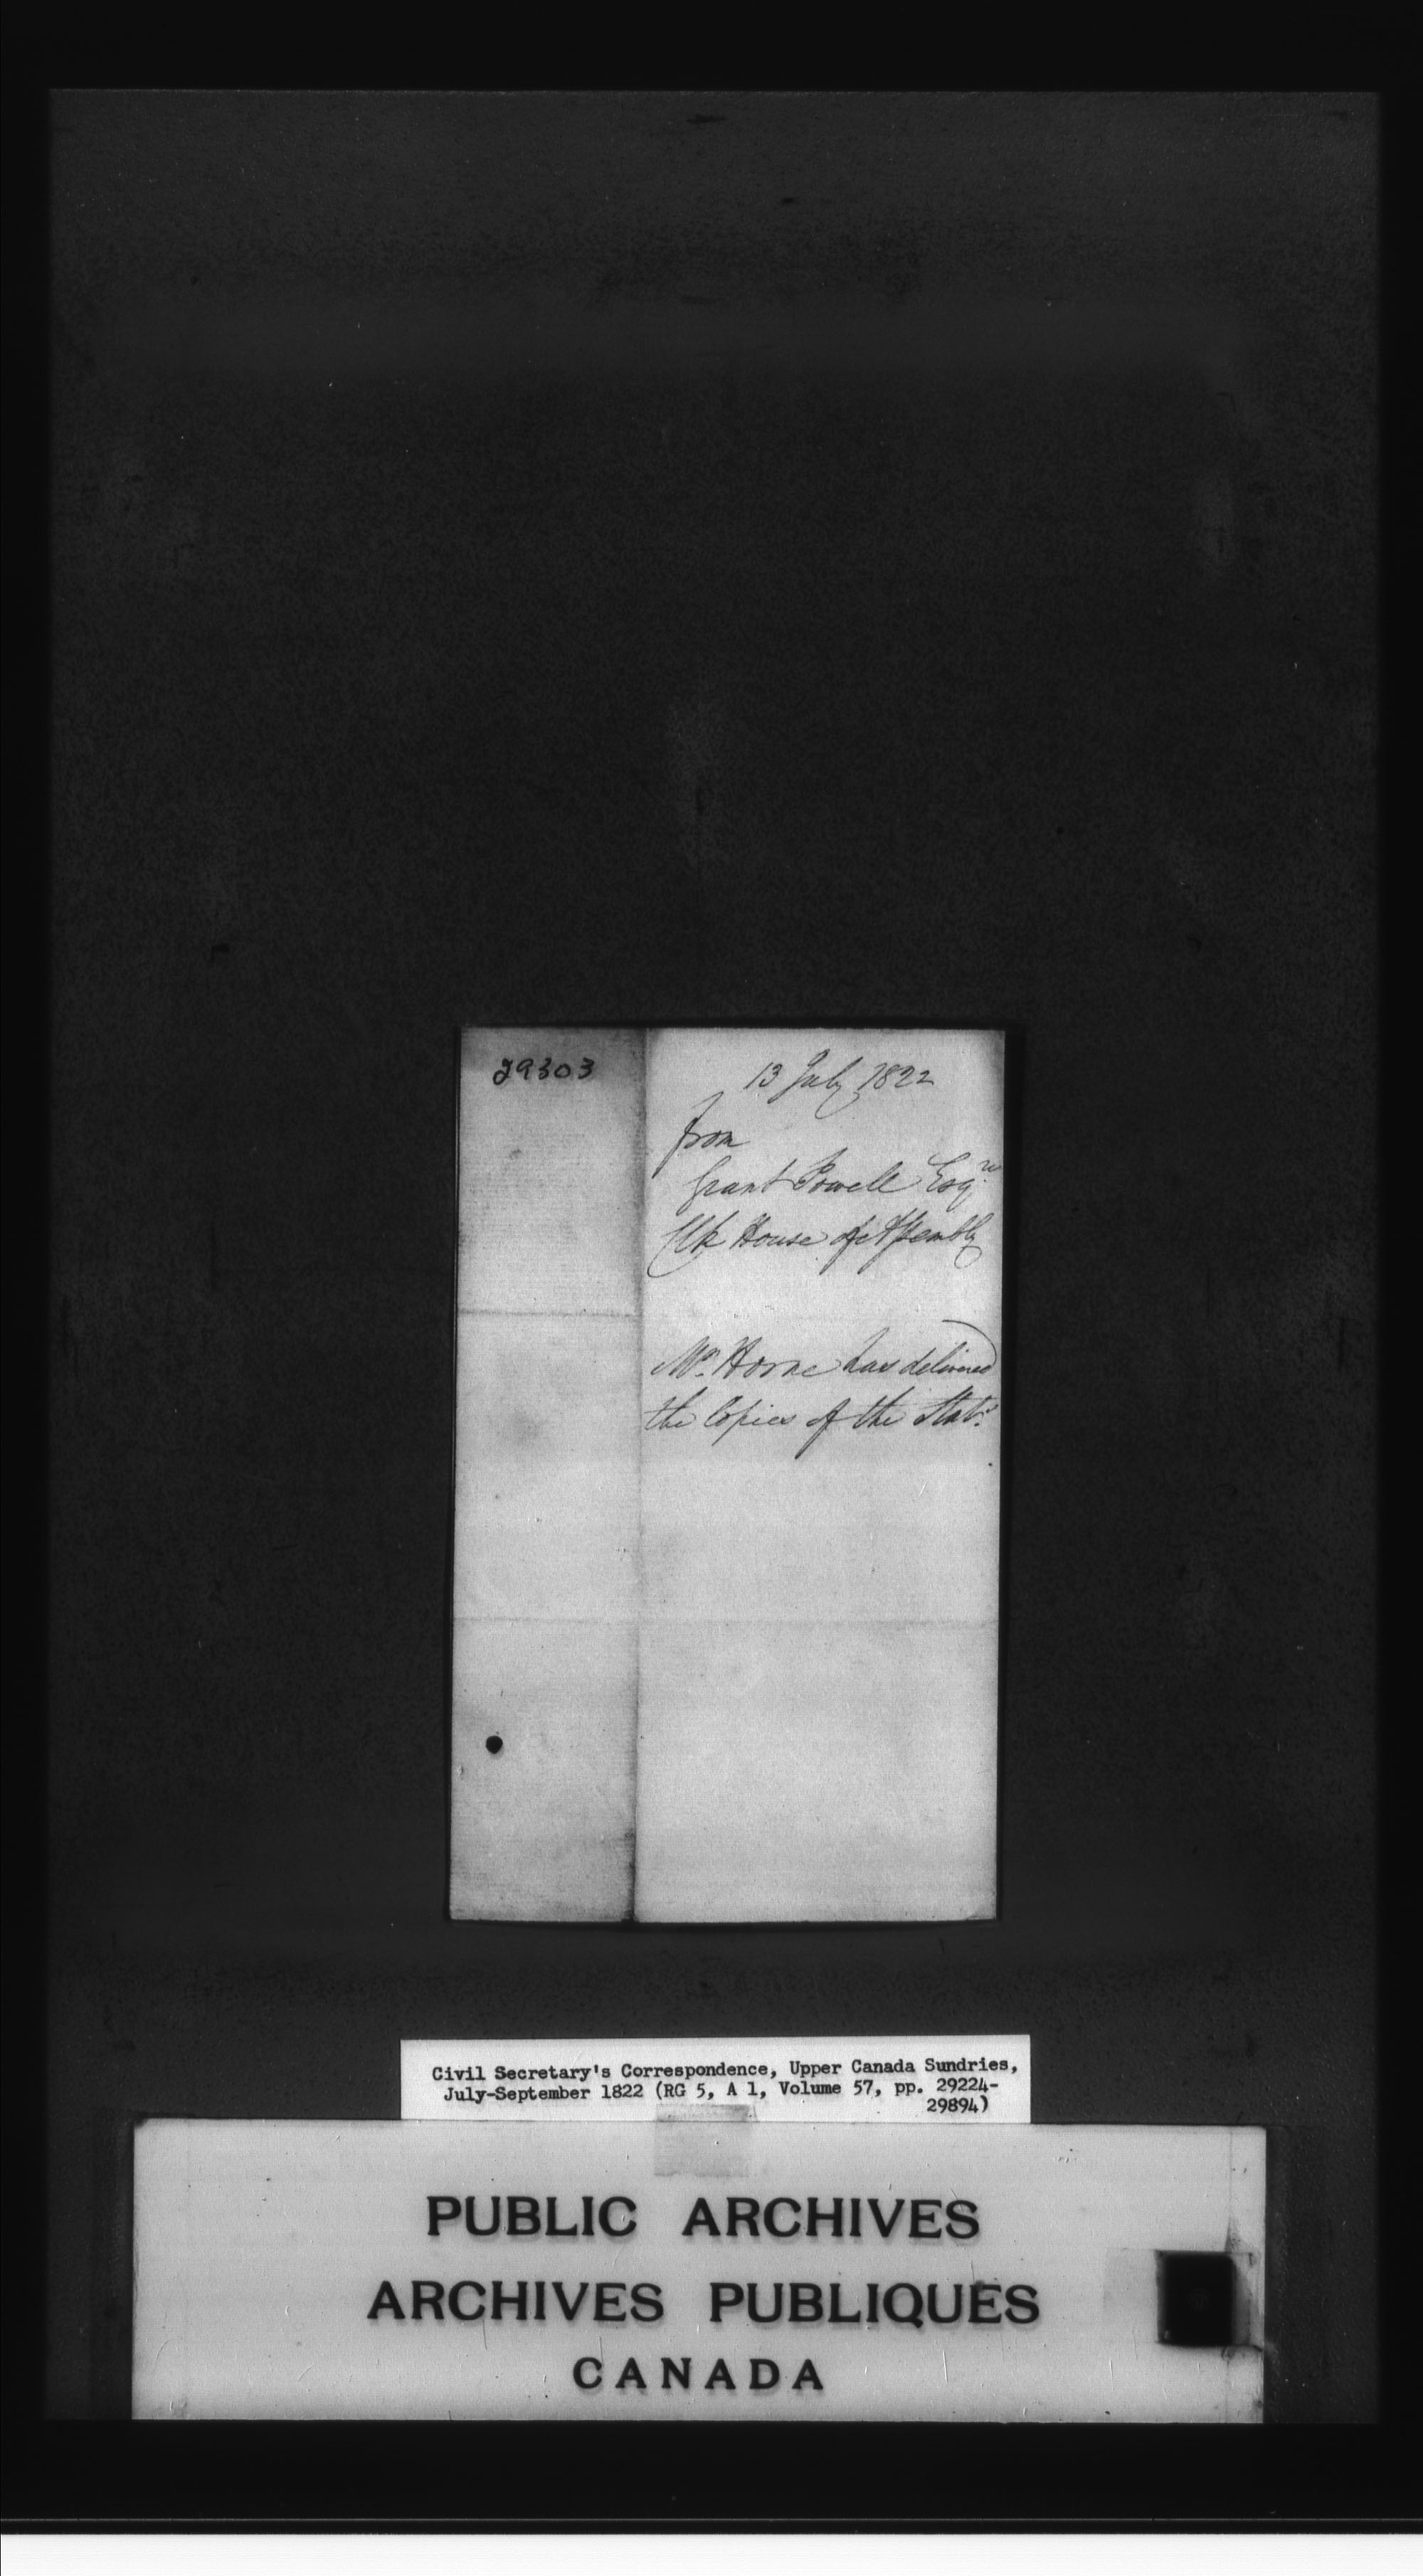 29303
13 July 1822
from
Grant Powell Esqre
Clk House of Assembly
Mr. Horne has delivered
the Copies of the Stats.
Civil Secretary's Correspondence, Upper Canada Sundries,
July-September 1822 (RG 5, A 1, Volume 57, pp. 29224-
29894)
PUBLIC ARCHIVES
ARCHIVES PUBLIQUES
CANADA